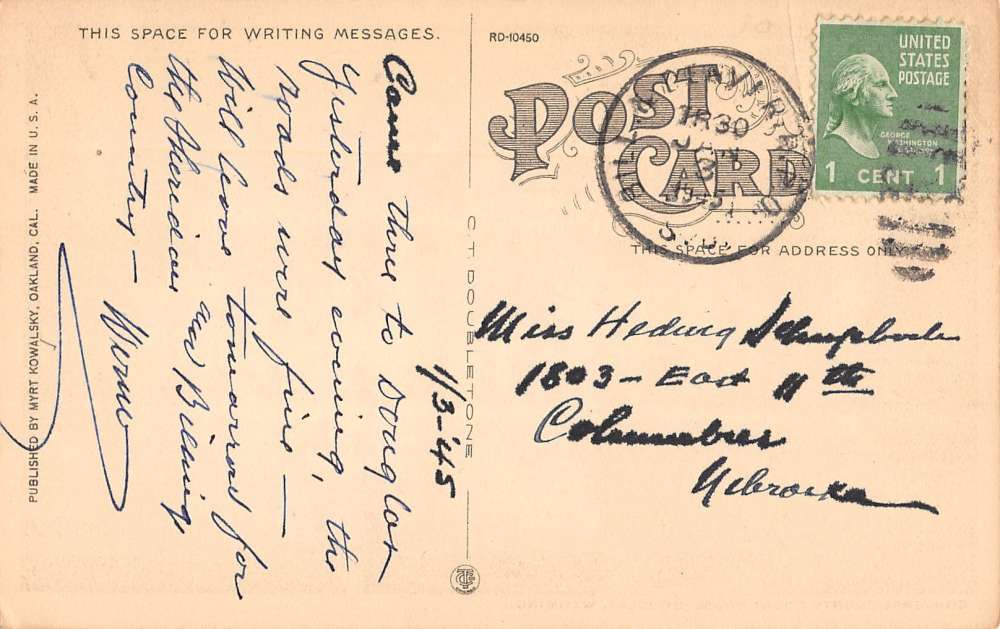 THIS SPACE FOR WRITING MESSAGES.
1/3-'45
Came thru to Douglas
yesterday evening, the
roads were fine —
Will leave tomorrow for
the Sheridan and Billings
Country —
Werner
PUBLISHED BY MYRT KOWALSKY, OAKLAND, CAL. MADE IN U.S.A.
C T DOUBLETONE
RD-10450
POST
CARD
THIS SPACE FOR ADDRESS ONLY
UNITED
STATES
POSTAGE
GEORGE
WASHINGTON
1 CENT 1
JAN
3
1945
Miss Hedwig
1803 - East 11th
Columbus
Nebraska